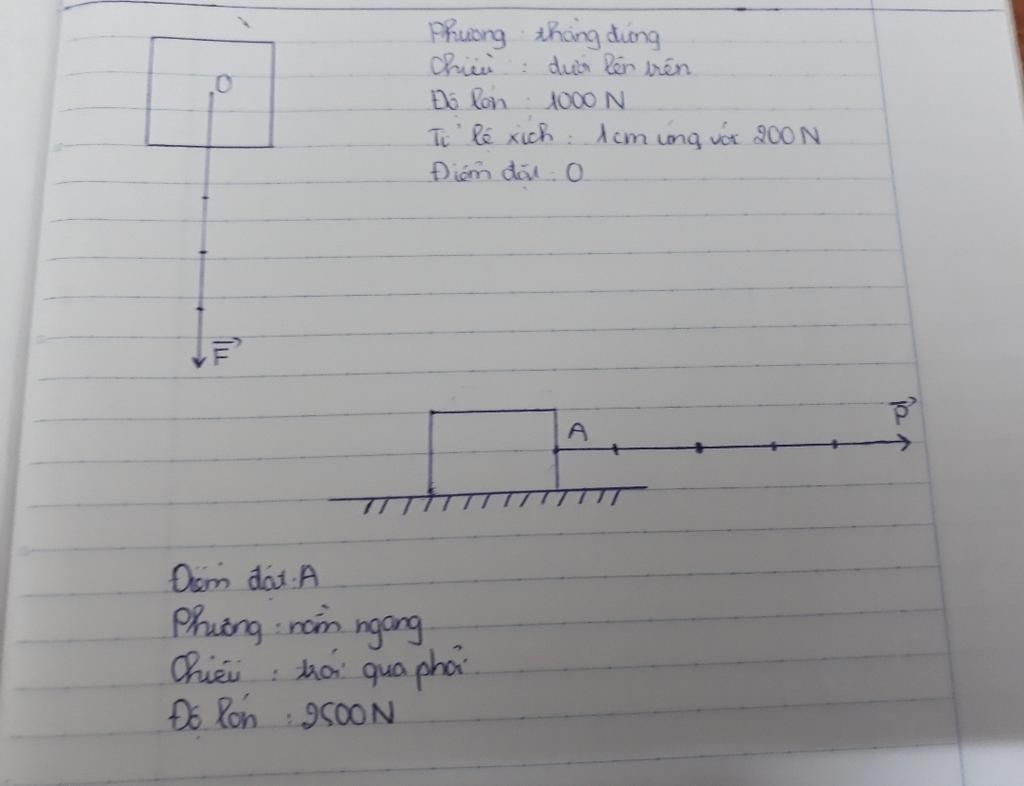 O
Phương : thẳng đứng
Chiều : dưới lên trên
Độ lớn : 1000 N
Tỉ lệ xích : 1cm ứng với 200N
Điểm đặt : O
F
A
P
Điểm đặt : A
Phương : nằm ngang
Chiều : trái qua phải
Độ lớn : 2500N